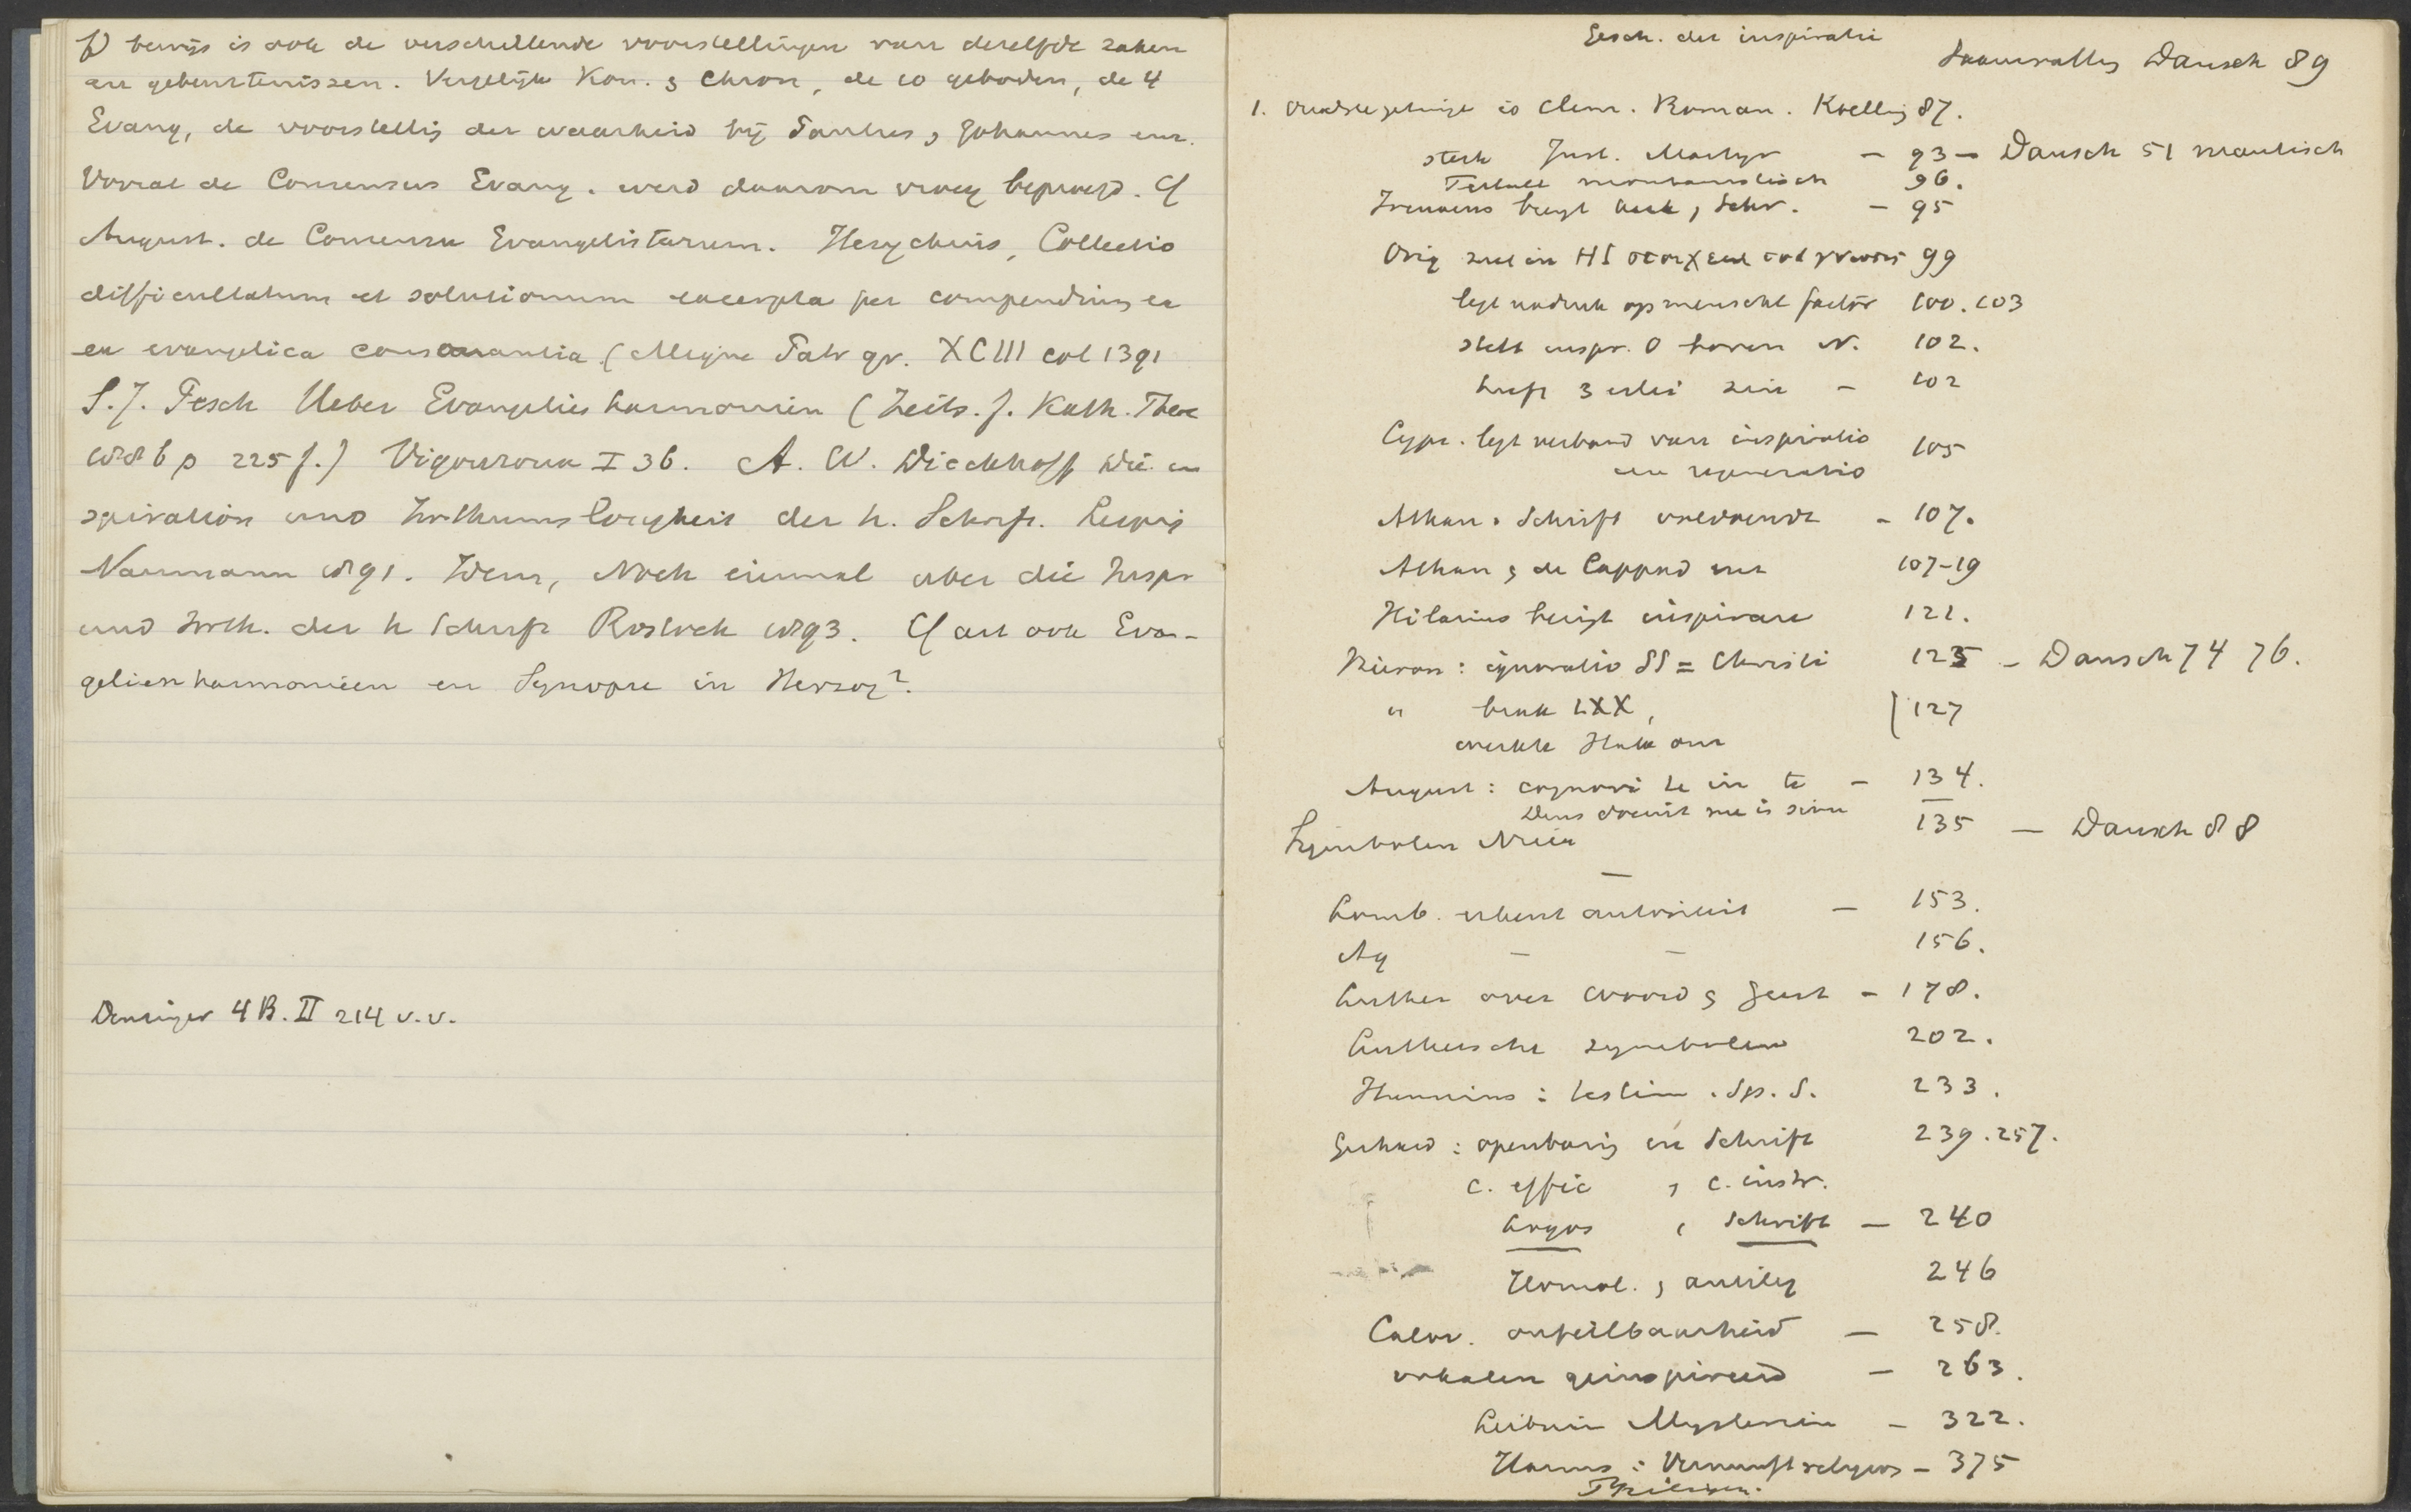 f) bewijs is ook de verschillende voorstellingen van dezelfde zaken
en gebeurtenissen. Vergelijk Kon. & Chron, de 10 geboden, de 4
Evang, de voorstellig der waarheid bij Paulus, Johannes enz.
Vooral de Consensus Evang. werd daarom vroeg beproefd. Cf
August. de Consensu Evangelistarum. Hesychius, Collectio
difficultatum et solutionum excerpta per compendium ex
ex evangelica consonantia (Migne Patr gr. XCIII col 1391
S.J. Pesch Ueber Evangelienharmonien (Zeits. f. Kath. Theol
1886 p 225 f.) Vigouroux I 36. A. W. Dieckhoff Die in
spiration und Irrthumslosigkeit der h. Schrift. Leipzig
Naumann 1891. Idem, Noch einmal über die Inspir
und Irrth. der h Schrift Rostock 1893. Cf art ook Evan-
gelienharmonieen en Synopse in Herzog².
Denzinger 4 B. II 214 v.v.
Gesch. der inspiratie
Dausch 89
1. Clem. Roman. Koelling 87.
sterk Just. Martyr - 93 - Dausch 51 mantisch
Tertull montanistisch 96.
Irenaeus Schr. - 95
Orig 99
legt nadruk op menschl factor 100. 103
stelt inspir. O boven N. 102.
heeft 3 erlei zin - 102
Cypr. legt verband van inspiratio 105
en regeneratio
Athan. Schrift voldoende - 107.
Athan & de Cappad 107-19
Hilarius bezigt inspirare 121.
Hieron: ignoratio SS = Christi 125 - Dausch 74 76.
" LXX, 127
August: cognovi te in te - 134.
Deus docuit me
135 - Dausch 88
Symbolen Nicea
-
Lomb. erkent autoriteit - 153.
Aq - - 156.
Luther over woord & Geest - 178.
Luthersche symbolen 202.
Hunnius: testim. Sp. S. 233.
Gerhard: openbaring en Schrift 239. 257.
c. effic , c. instr.
Logos , Schrift - 240
Homol. , antileg 246
Calov. onfeilbaarheid - 258.
vokalen geinspireerd - 263.
Leibniz Mysterien - 322.
Harms: Vernunftreligion - 375